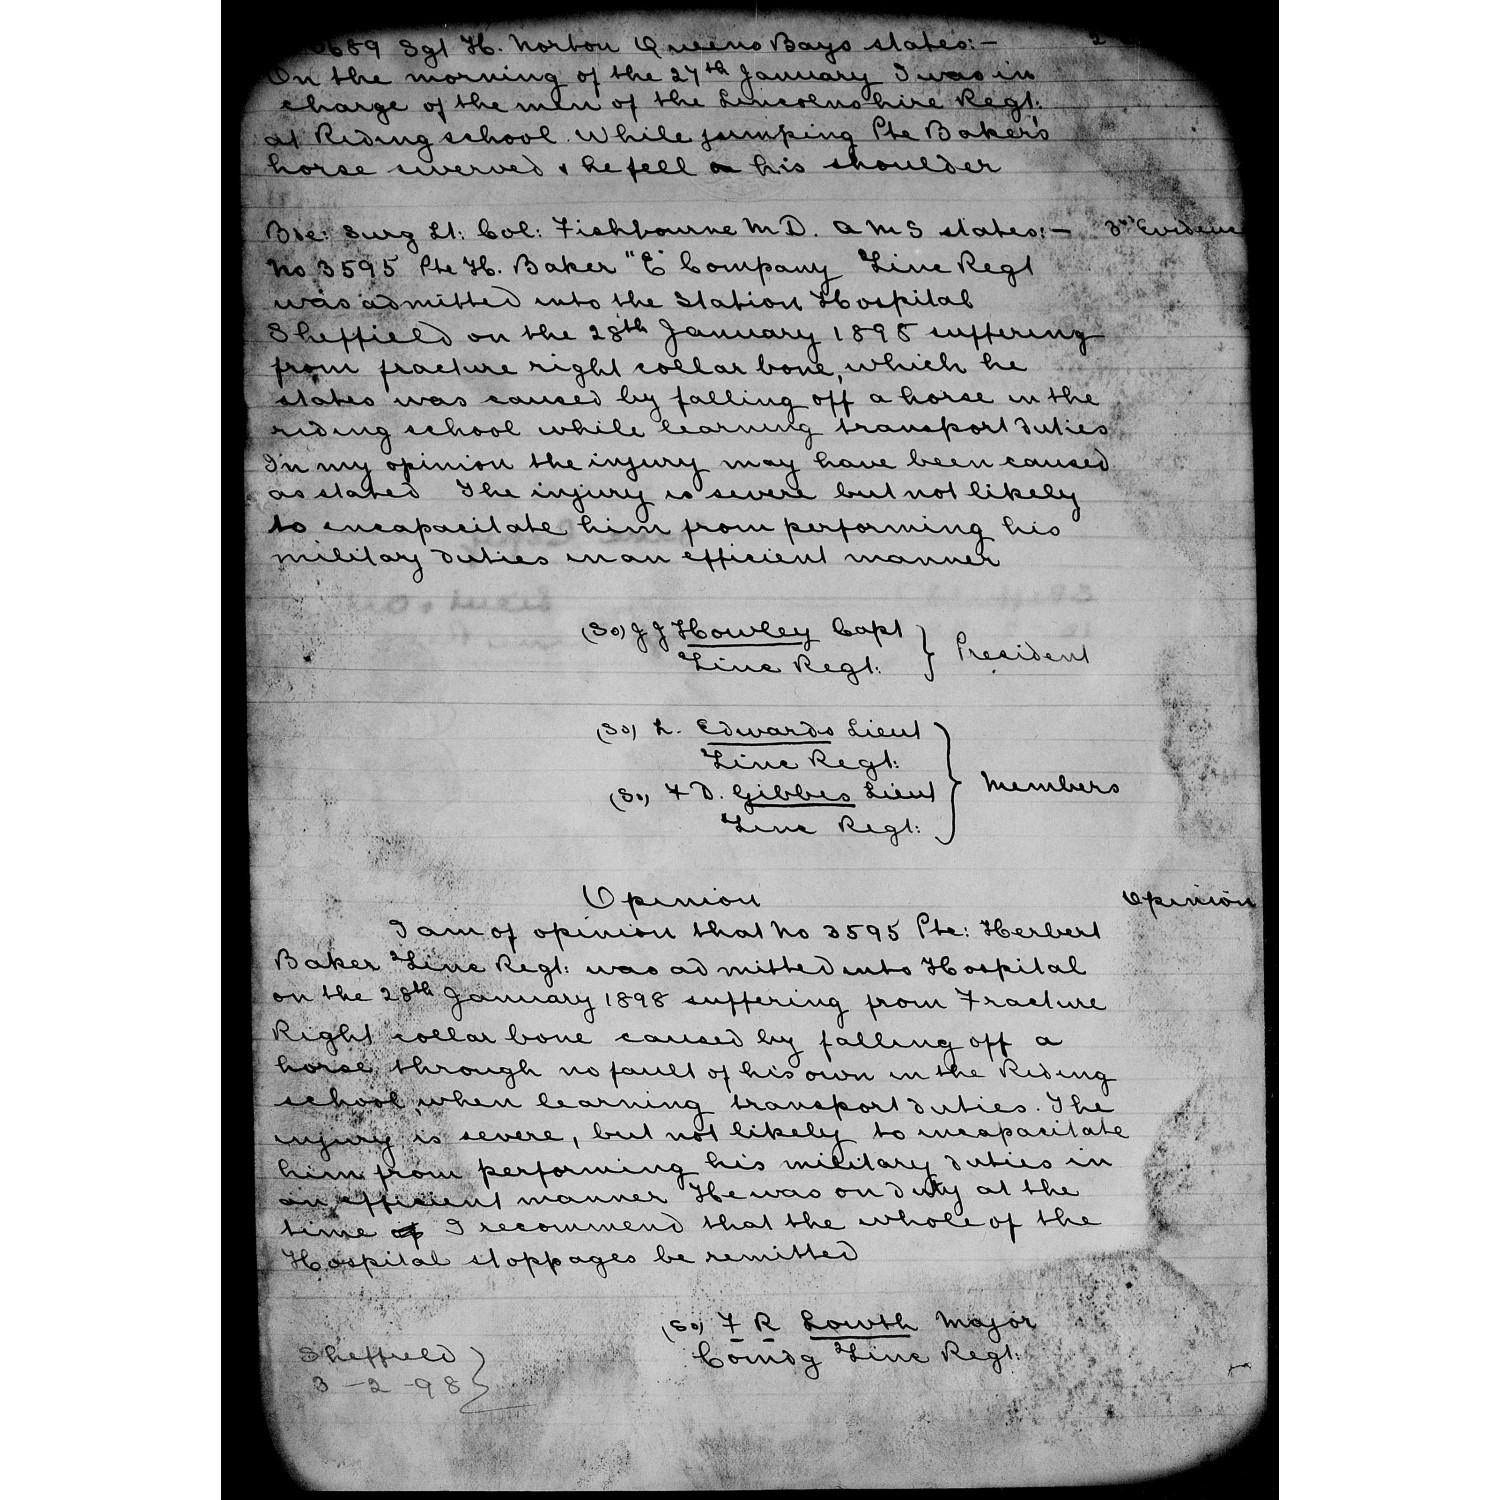 0689 Sgt H. Norton Queens Bays states:-
On the morning of the 27th January I was in
charge of the men of the Lincolnshire Regt:
at Riding school. While jumping Pte Baker's
horse swerved & he fell on his shoulder
Bde: Surg Lt: Col: Fishbourne M.D. A M S states:- 3rd Evidence
No 3595 Pte H. Baker "E" Company Linc Regt
was admitted into the Station Hospital
Sheffield on the 28th January 1898 suffering
from fracture right collar bone, which he
states was caused by falling off a horse in the
riding school while learning transport duties
In my opinion the injury may have been caused
as stated The injury is severe but not likely
to incapacitate him from performing his
military duties in an efficient manner
(Sd) J J Howley Capt
Linc Regt: } President
(Sd) L. Edwards Lieut
Linc Regt:
(Sd) F D. Gibbes Lieut } Members
Linc Regt:
Opinion Opinion
I am of opinion that No 3595 Pte: Herbert
Baker Linc Regt: was admitted into Hospital
on the 28th January 1898 suffering from Fracture
Right collar bone caused by falling off a
horse, through no fault of his own in the Riding
school, when learning transport duties. The
injury is severe, but not likely to incapacitate
him from performing his military duties in
an efficient manner He was on duty at the
time of I recommend that the whole of the
Hospital stoppages be remitted
(Sd) F R Lowth Major
Comdg Linc Regt:
Sheffield
3-2-98